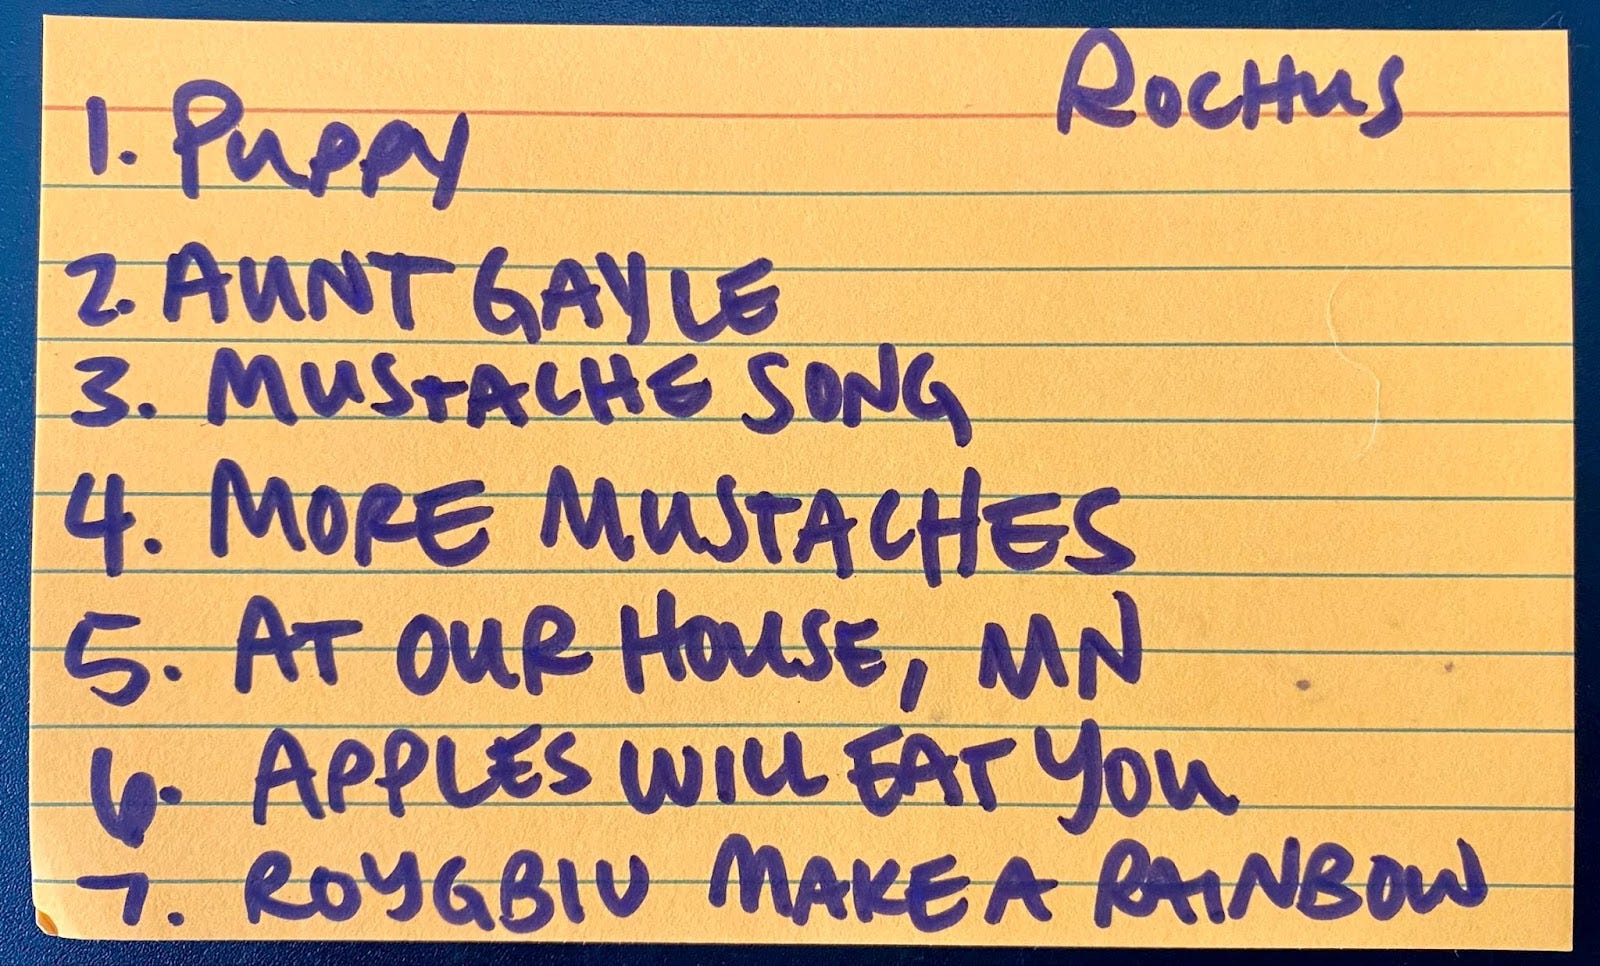 Rochus
1. Puppy
2. AUNT GAYLE
3. MUSTACHE SONG
4. MORE MUSTACHES
5. AT OUR HOUSE, MN
6. APPLES WILL EAT YOU
7. ROYGBIV MAKE A RAINBOW